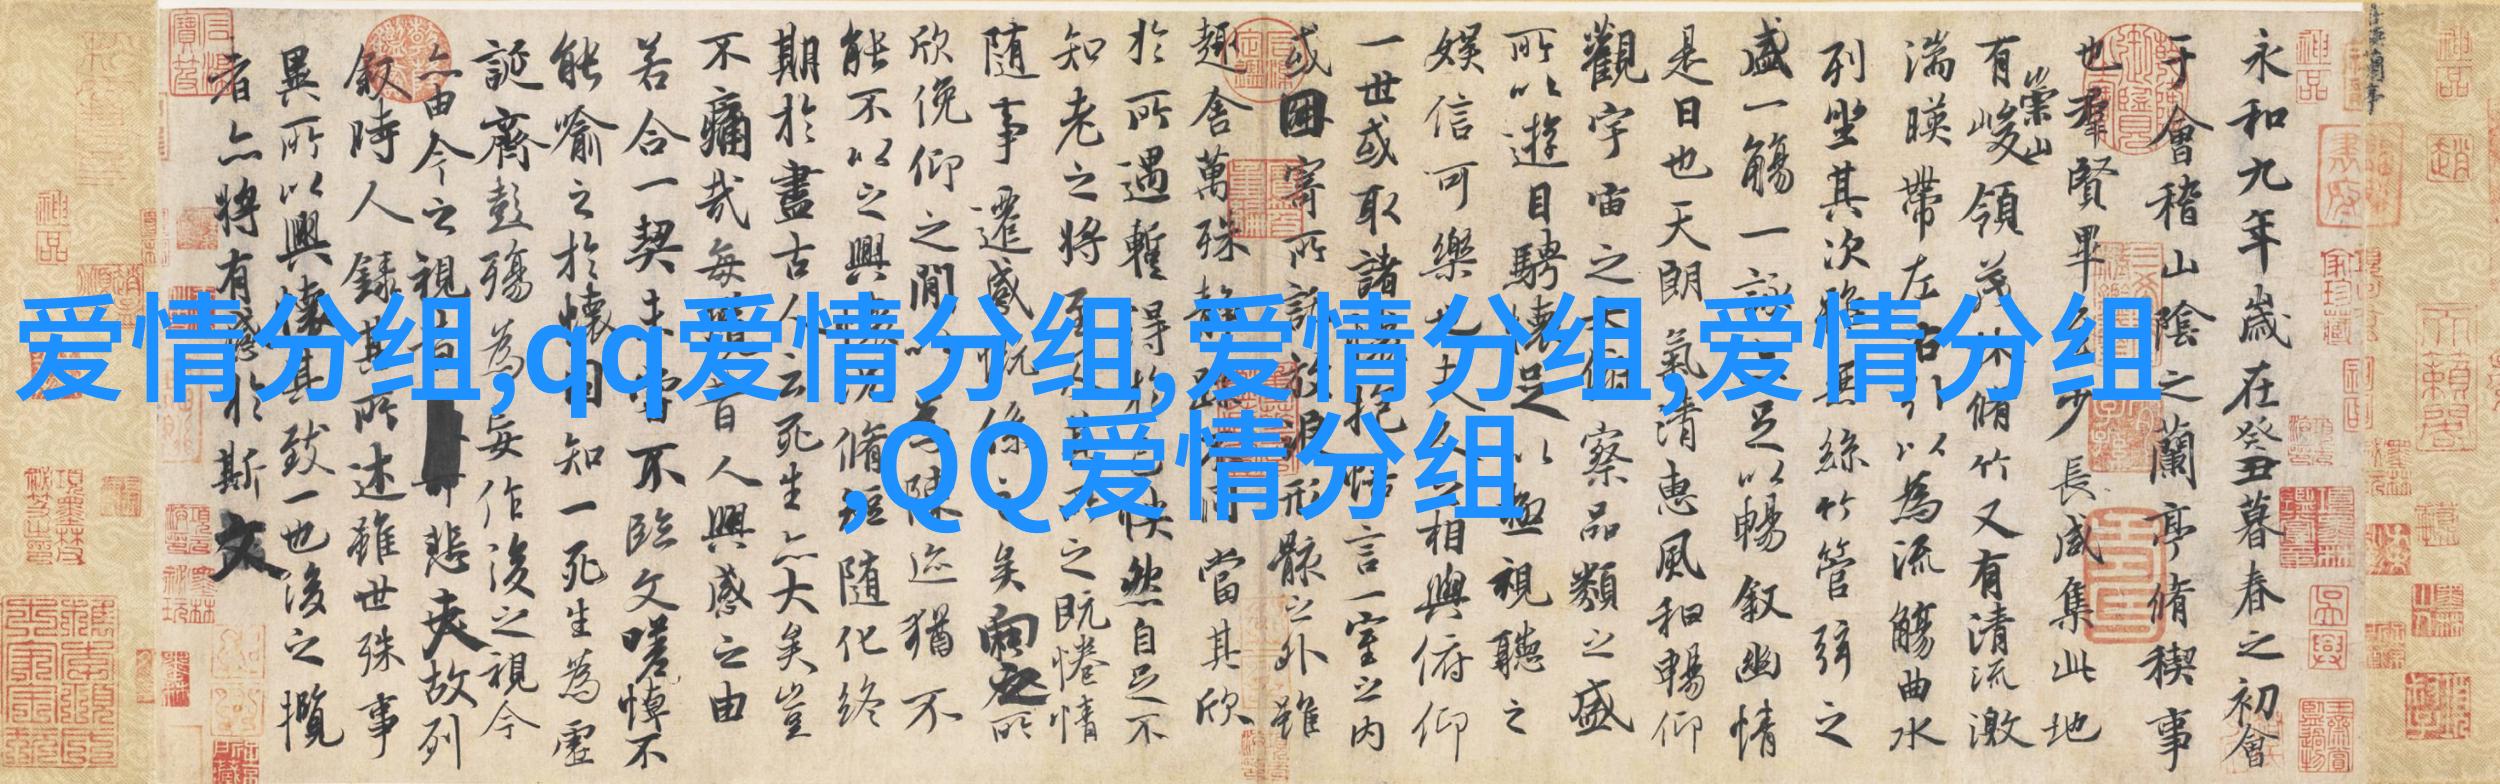 爱情分组,qq爱情分组,爱情分组,爱情分组
,QQ爱情分组
永和九年歲在癸丑暮春之初會
于會稽山陰之蘭亭脩稧事
也羣賢畢至少長咸集此地
有崇山峻領茂林脩竹又有清流激
湍暎帶左右引以為流觴曲水
列坐其次雖無絲竹管弦之
盛一觴一詠亦足以暢敘幽情
是日也天朗氣清惠風和暢仰
觀宇宙之大俯察品類之盛
所以遊目騁懷足以極視聽之
娛信可樂也夫人之相與俯仰
一世或取諸懷抱悟言一室之內
或因寄所託放浪形骸之外雖
趣舍萬殊靜躁不同當其欣
於所遇暫得於己怏然自足不
知老之將至及其所之既惓情
隨事遷感慨係之矣向之所
欣俛仰之閒以為陳迹猶不
能不以之興懷況脩短隨化終
期於盡古人云死生亦大矣豈
不痛哉每攬昔人興感之由
若合一契未嘗不臨文嗟悼不
能喻之於懷固知一死生為虛
誕齊彭殤為妄作後之視今
亦由今之視昔悲夫故列
敘時人錄其所述雖世殊事
異所以興懷其致一也後之攬
者亦將有感於斯文